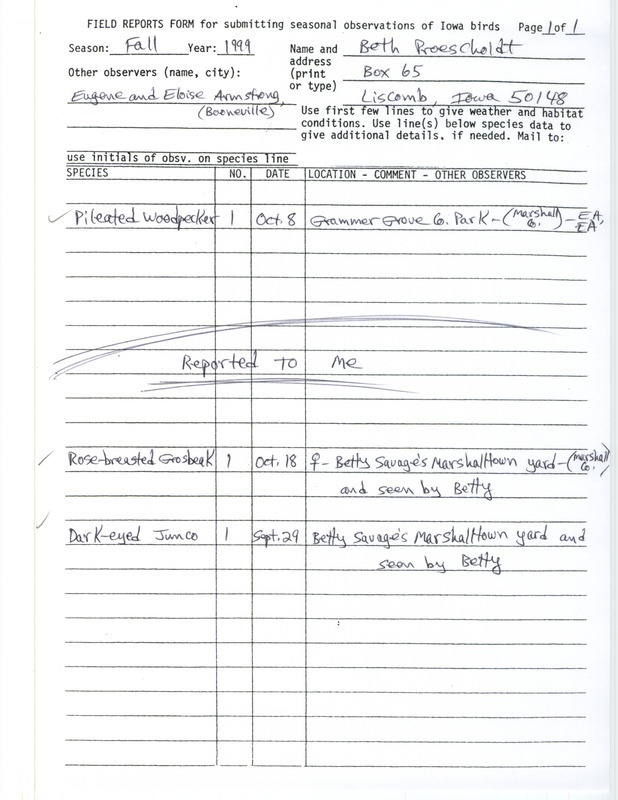 FIELD REPORTS FORM for submitting seasonal observations of Iowa birds Page 1 of 1
Season: Fall Year: 1999 Name and address (print or type) Beth Proescholdt
Box 65
Liscomb, Iowa 50148
Other observers (name, city):
Eugene and Eloise Armstrong,
(Booneville)
Use first few lines to give weather and habitat
conditions. Use line(s) below species data to
give additional details, if needed. Mail to:
use initials of obsv. on species line
SPECIES NO. DATE LOCATION - COMMENT - OTHER OBSERVERS
✓ Pileated Woodpecker 1 Oct. 8 Grammer Grove Co. Park - (Marshall Co.) - EA, EA
Reported to me
✓ Rose-breasted Grosbeak 1 Oct. 18 ♀ - Betty Savage's Marshalltown yard - (Marshall Co.)
and seen by Betty
✓ Dark-eyed Junco 1 Sept. 29 Betty Savage's Marshalltown yard and
seen by Betty